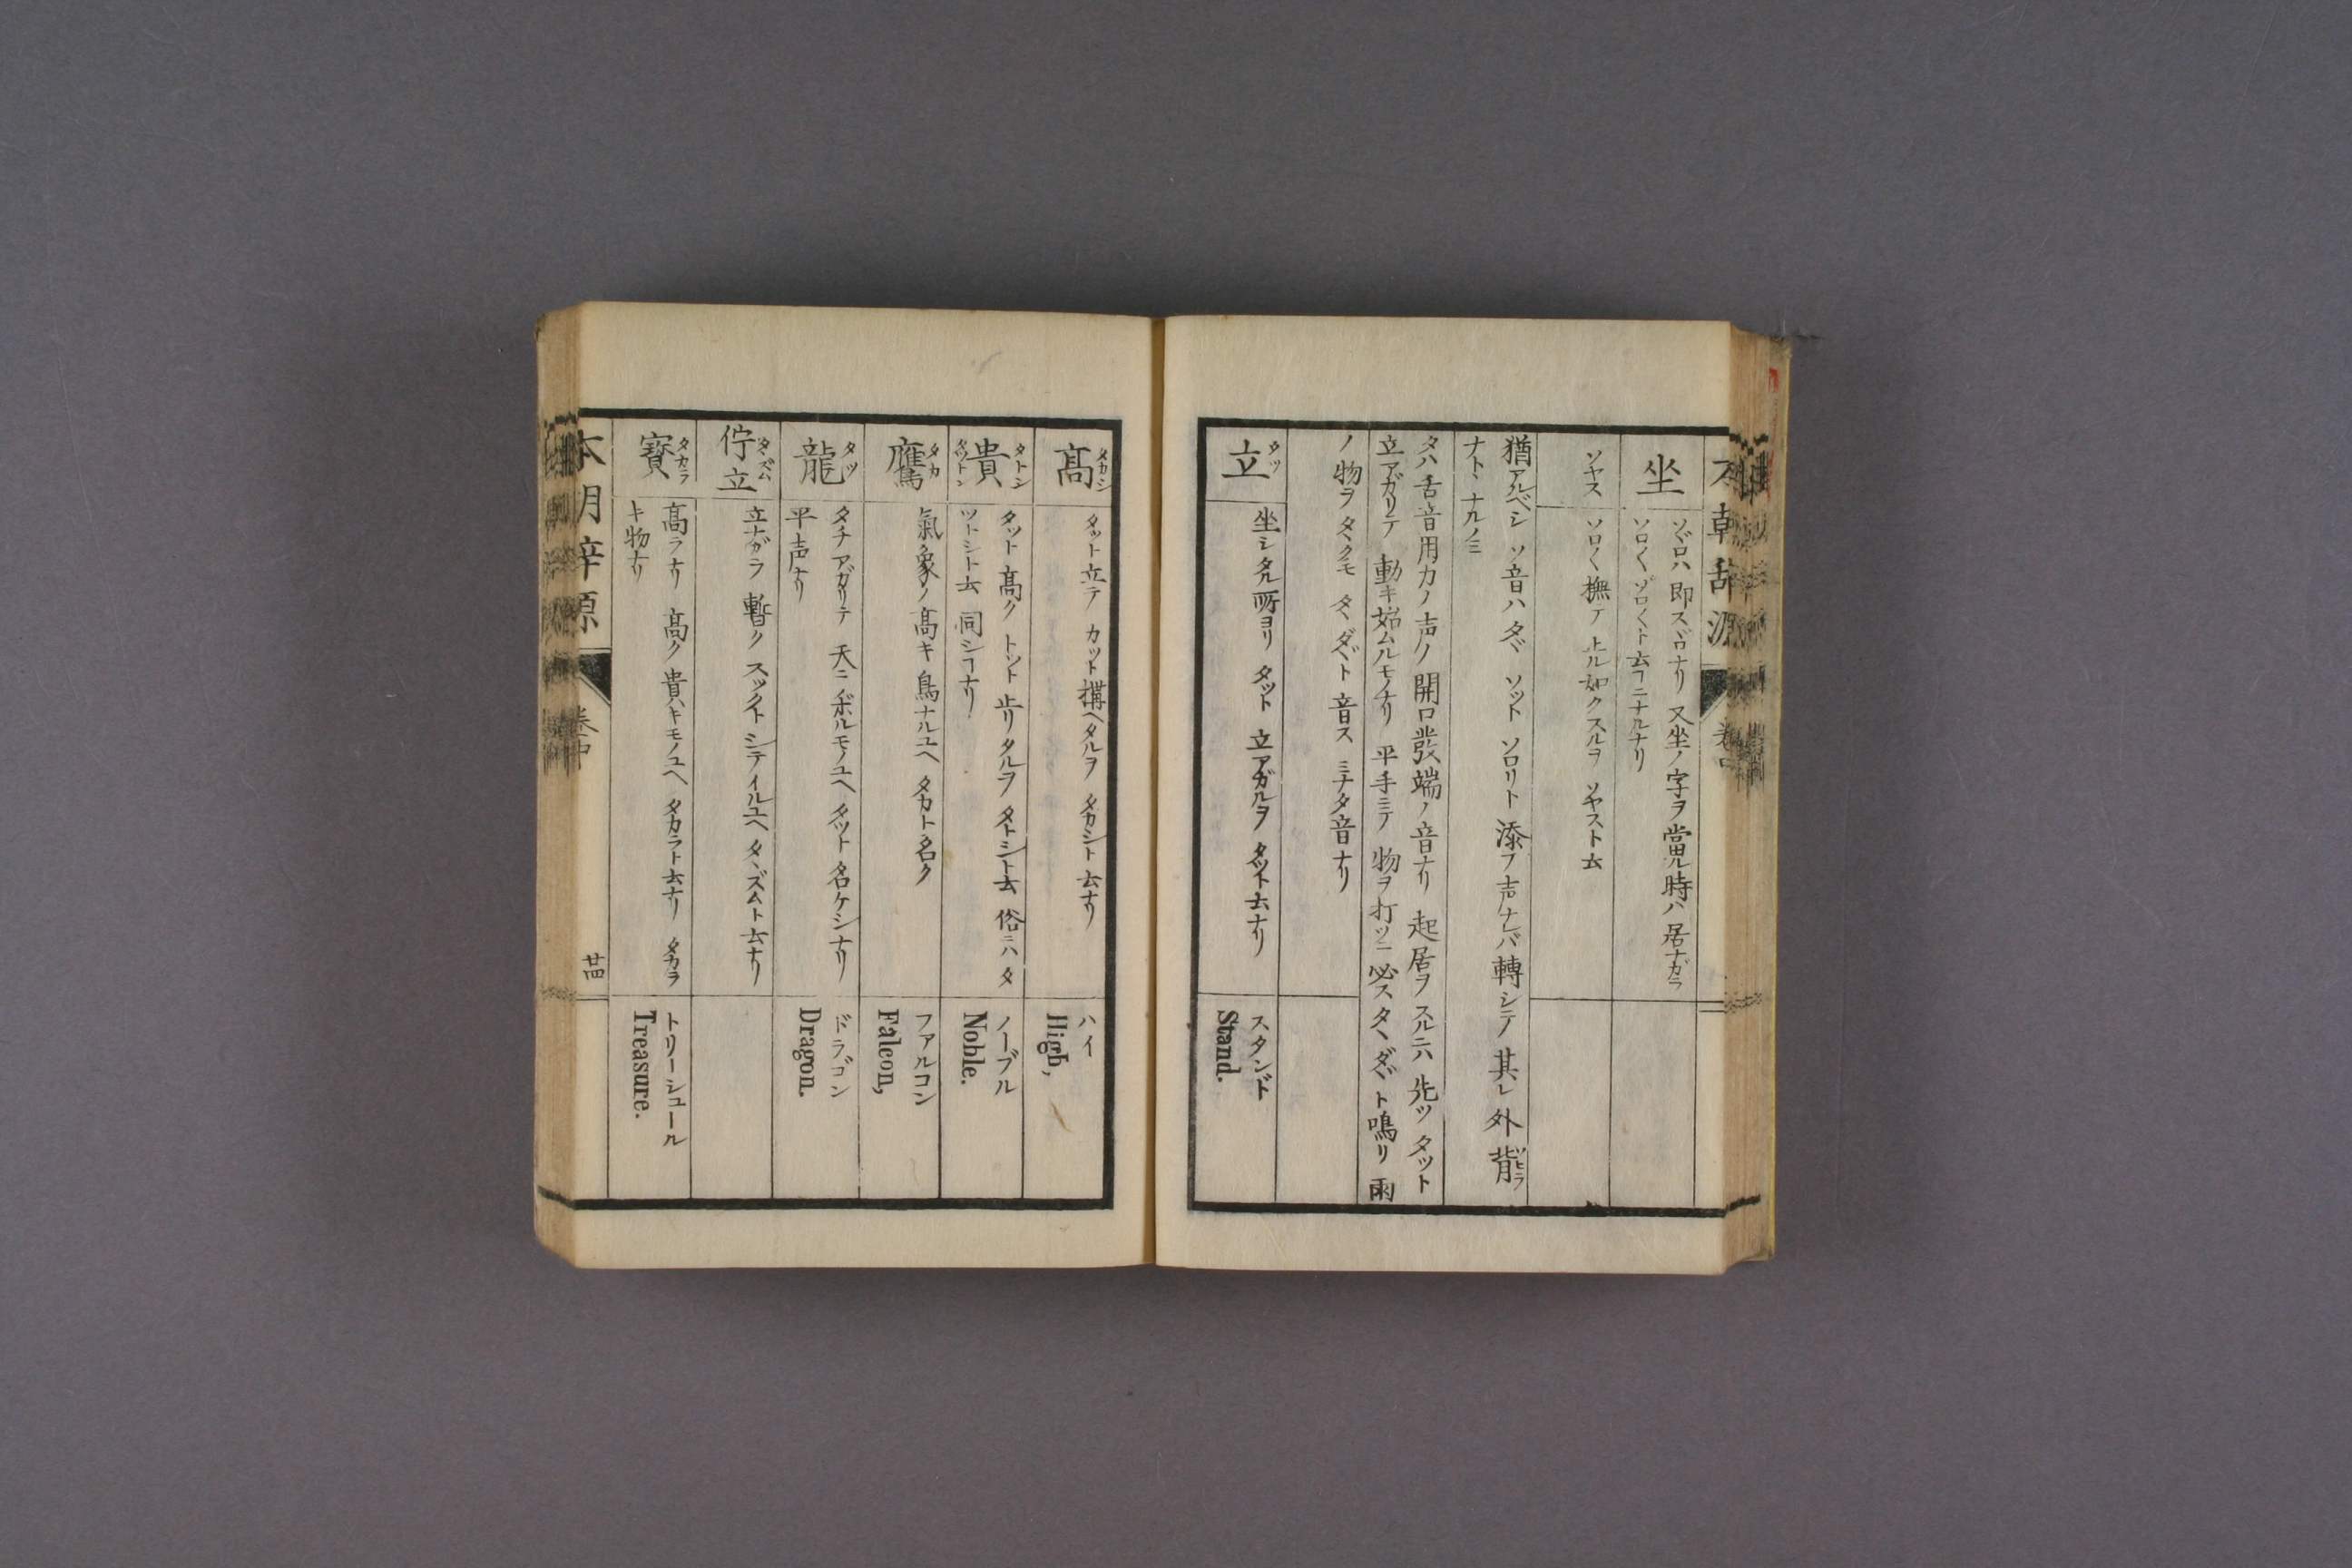 本朝辞源
坐
ソヾロハ 即スヾロナリ 又坐ノ字ヲ當ル時ハ 居ナガラ
ソロ〱 ゾロ〱ト 云フニナルナリ
ソヤス
ソロ〱 撫テ 上ル如クスルヲ ソヤスト云
猶アルベシ ソ音ハ タヾ ソット ソロリト 添フ声ナレバ 轉シテ 其レ 外 背
ソヒラ
ナトヽ ナルノミ
タハ 舌音用カノ声ノ 開口發端ノ音ナリ 起居ヲ スルニハ 先ツ タット
立アガリテ 動キ始ムルモノナリ 平手ニテ 物ヲ打ツニ 必ス タヽ ダヾト鳴リ 雨
ノ物ヲタヽクモ タヽ ダヾト 音ス ミナタ音ナリ
立
タツ
坐シタル所ヨリ タット 立アガルヲ タツト云ナリ
スタンド
Stand.
高
タカシ
タット立テ カット構ヘタルヲ タカシト云ナリ
ハイ
High,
貴
タトシ
タットシ
タット高ク トント 止リタルヲ タトシト云 俗ニハ タ
ツトシト云 同シヿナリ
ノーブル
Noble.
鷹
タカ
氣象ノ 高キ 鳥ナルユヘ タカト名ク
ファルコン
Falcon,
龍
タツ
タチ アガリテ 天ニ ノボルモノユヘ タツト 名ケシナリ
平声ナリ
ドラゴン
Dragon.
佇立
タヽズム
立ナガラ 暫ク スックト シテイルユヘ タヽズムト云ナリ
寶
タカラ
高ラナリ 高ク 貴ハキモノユヘ タカラト云ナリ タカラ
キ物ナリ
トリーシュール
Treasure.
本朝辞源
卷中
廿四